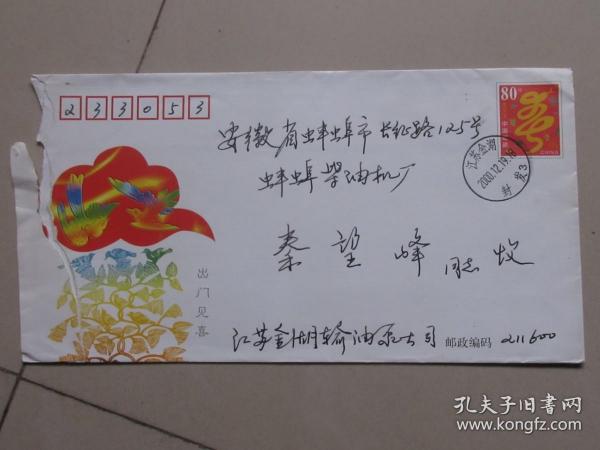 233053
80分
中国邮政
CHINA
安徽省蚌埠市长征路125号
蚌埠柴油机厂
江苏金湖
2000.12.19.18
封发3
秦望峰 同志 收
出门见喜
江苏金湖输油泵公司 邮政编码 211600
孔夫子旧书网
www.kongfz.com